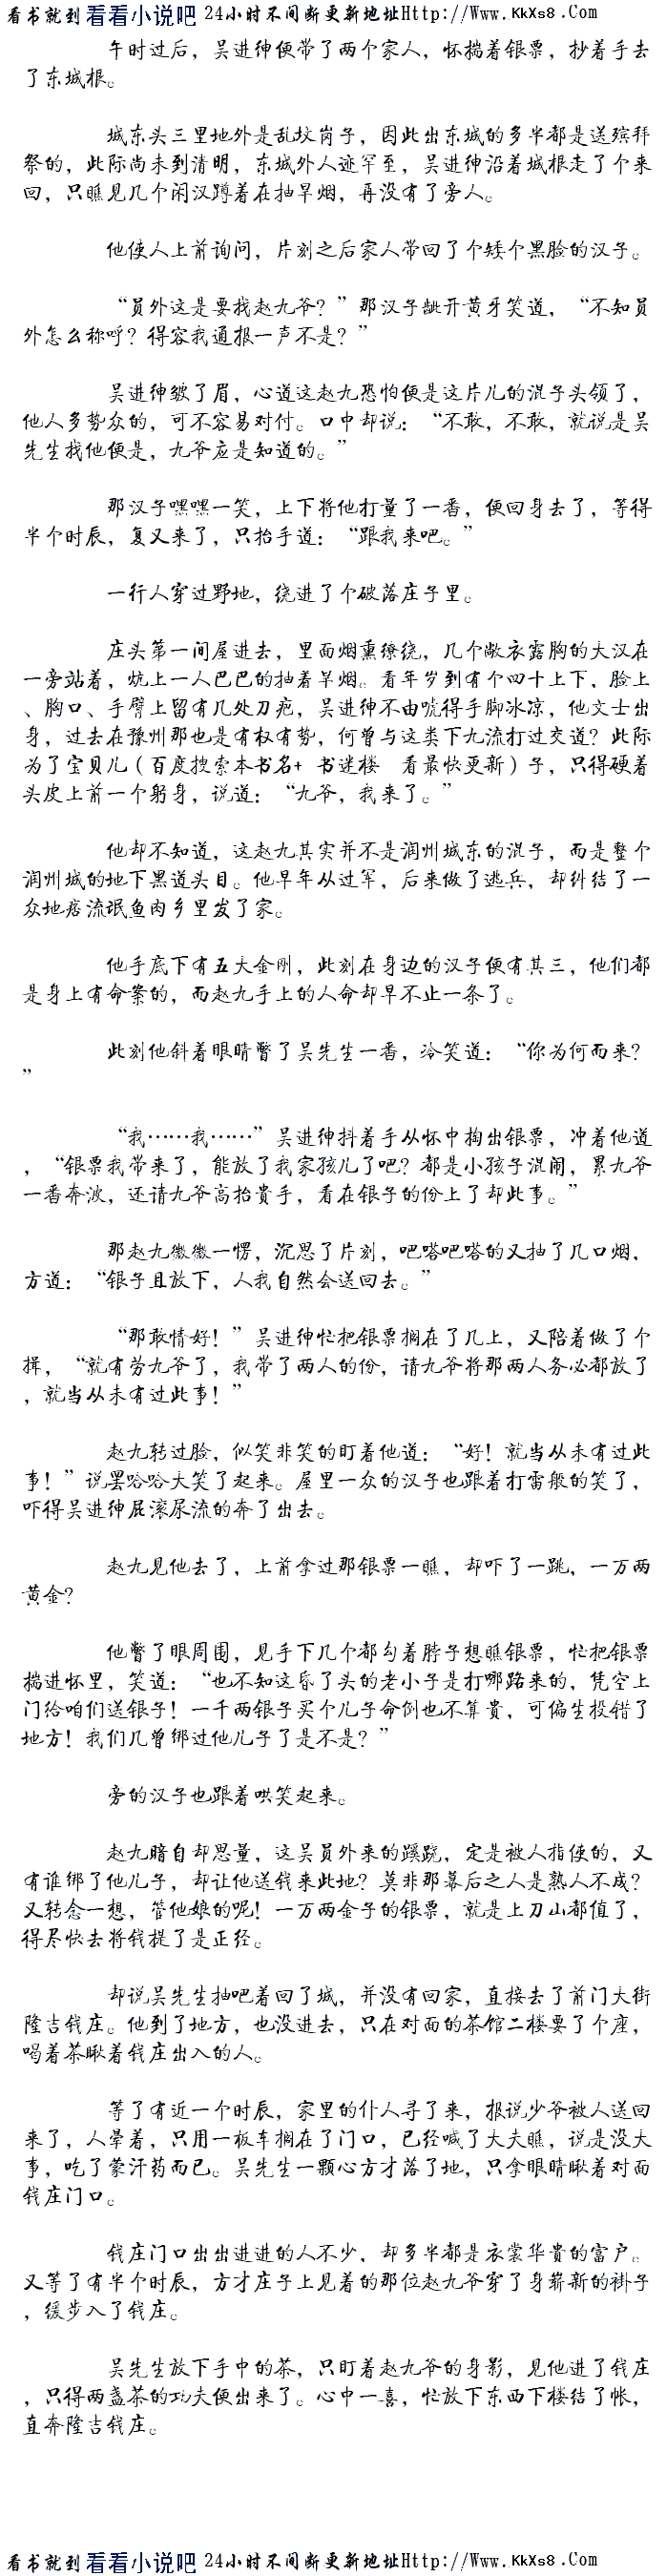 看书就到 看看小说吧 24小时不间断更新地址Http://Www.KkXs8.Com
午时过后，吴进绅便带了两个家人，怀揣着银票，抄着手去
了东城根。
城东头三里地外是乱坟岗子，因此出东城的多半都是送殡拜
祭的，此际尚未到清明，东城外人迹罕至，吴进绅沿着城根走了个来
回，只瞧见几个闲汉蹲着在抽旱烟，再没有了旁人。
他使人上前询问，片刻之后家人带回了个矮个黑脸的汉子。
“员外这是要找赵九爷？”那汉子龇开黄牙笑道，“不知员
外怎么称呼？得容我通报一声不是？”
吴进绅皱了眉，心道这赵九恐怕便是这片儿的混子头领了，
他人多势众的，可不容易对付。口中却说：“不敢，不敢，就说是吴
先生找他便是，九爷应是知道的。”
那汉子嘿嘿一笑，上下将他打量了一番，便回身去了，等得
半个时辰，复又来了，只抬手道：“跟我来吧。”
一行人穿过野地，绕进了个破落庄子里。
庄头第一间屋进去，里面烟熏缭绕，几个敞衣露胸的大汉在
一旁站着，炕上一人巴巴的抽着旱烟。看年岁到有个四十上下，脸上
、胸口、手臂上留有几处刀疤，吴进绅不由唬得手脚冰凉，他文士出
身，过去在豫州那也是有权有势，何曾与这类下九流打过交道？此际
为了宝贝儿（百度搜索本书名+ 书迷楼 看最快更新）子，只得硬着
头皮上前一个躬身，说道：“九爷，我来了。”
他却不知道，这赵九其实并不是润州城东的混子，而是整个
润州城的地下黑道头目。他早年从过军，后来做了逃兵，却纠结了一
众地痞流氓鱼肉乡里发了家。
他手底下有五大金刚，此刻在身边的汉子便有其三，他们都
是身上有命案的，而赵九手上的人命却早不止一条了。
此刻他斜着眼睛瞥了吴先生一番，冷笑道：“你为何而来？
”
“我……我……”吴进绅抖着手从怀中掏出银票，冲着他道
，“银票我带来了，能放了我家孩儿了吧？都是小孩子混闹，累九爷
一番奔波，还请九爷高抬贵手，看在银子的份上了却此事。”
那赵九微微一愣，沉思了片刻，吧嗒吧嗒的又抽了几口烟，
方道：“银子且放下，人我自然会送回去。”
“那敢情好！”吴进绅忙把银票搁在了几上，又陪着做了个
揖，“就有劳九爷了，我带了两人的份，请九爷将那两人务必都放了
，就当从未有过此事！”
赵九转过脸，似笑非笑的盯着他道：“好！就当从未有过此
事！”说罢哈哈大笑了起来。屋里一众的汉子也跟着打雷般的笑了，
吓得吴进绅屁滚尿流的奔了出去。
赵九见他去了，上前拿过那银票一瞧，却吓了一跳，一万两
黄金？
他瞥了眼周围，见手下几个都勾着脖子想瞧银票，忙把银票
揣进怀里，笑道：“也不知这昏了头的老小子是打哪路来的，凭空上
门给咱们送银子！一千两银子买个儿子命倒也不算贵，可偏生投错了
地方！我们几曾绑过他儿子了是不是？”
旁的汉子也跟着哄笑起来。
赵九暗自却思量，这吴员外来的蹊跷，定是被人指使的，又
有谁绑了他儿子，却让他送钱来此地？莫非那幕后之人是熟人不成？
又转念一想，管他娘的呢！一万两金子的银票，就是上刀山都值了，
得尽快去将钱提了是正经。
却说吴先生抽吧着回了城，并没有回家，直接去了前门大街
隆吉钱庄。他到了地方，也没进去，只在对面的茶馆二楼要了个座，
喝着茶瞅着钱庄出入的人。
等了有近一个时辰，家里的仆人寻了来，报说少爷被人送回
来了，人晕着，只用一板车搁在了门口，已经喊了大夫瞧，说是没大
事，吃了蒙汗药而已。吴先生一颗心方才落了地，只拿眼睛瞅着对面
钱庄门口。
钱庄门口出出进进的人不少，却多半都是衣裳华贵的富户。
又等了有半个时辰，方才庄子上见着的那位赵九爷穿了身崭新的褂子
，缓步入了钱庄。
吴先生放下手中的茶，只盯着赵九爷的身影，见他进了钱庄
，只得两盏茶的功夫便出来了。心中一喜，忙放下东西下楼结了帐，
直奔隆吉钱庄。
看书就到 看看小说吧 24小时不间断更新地址Http://Www.KkXs8.Com